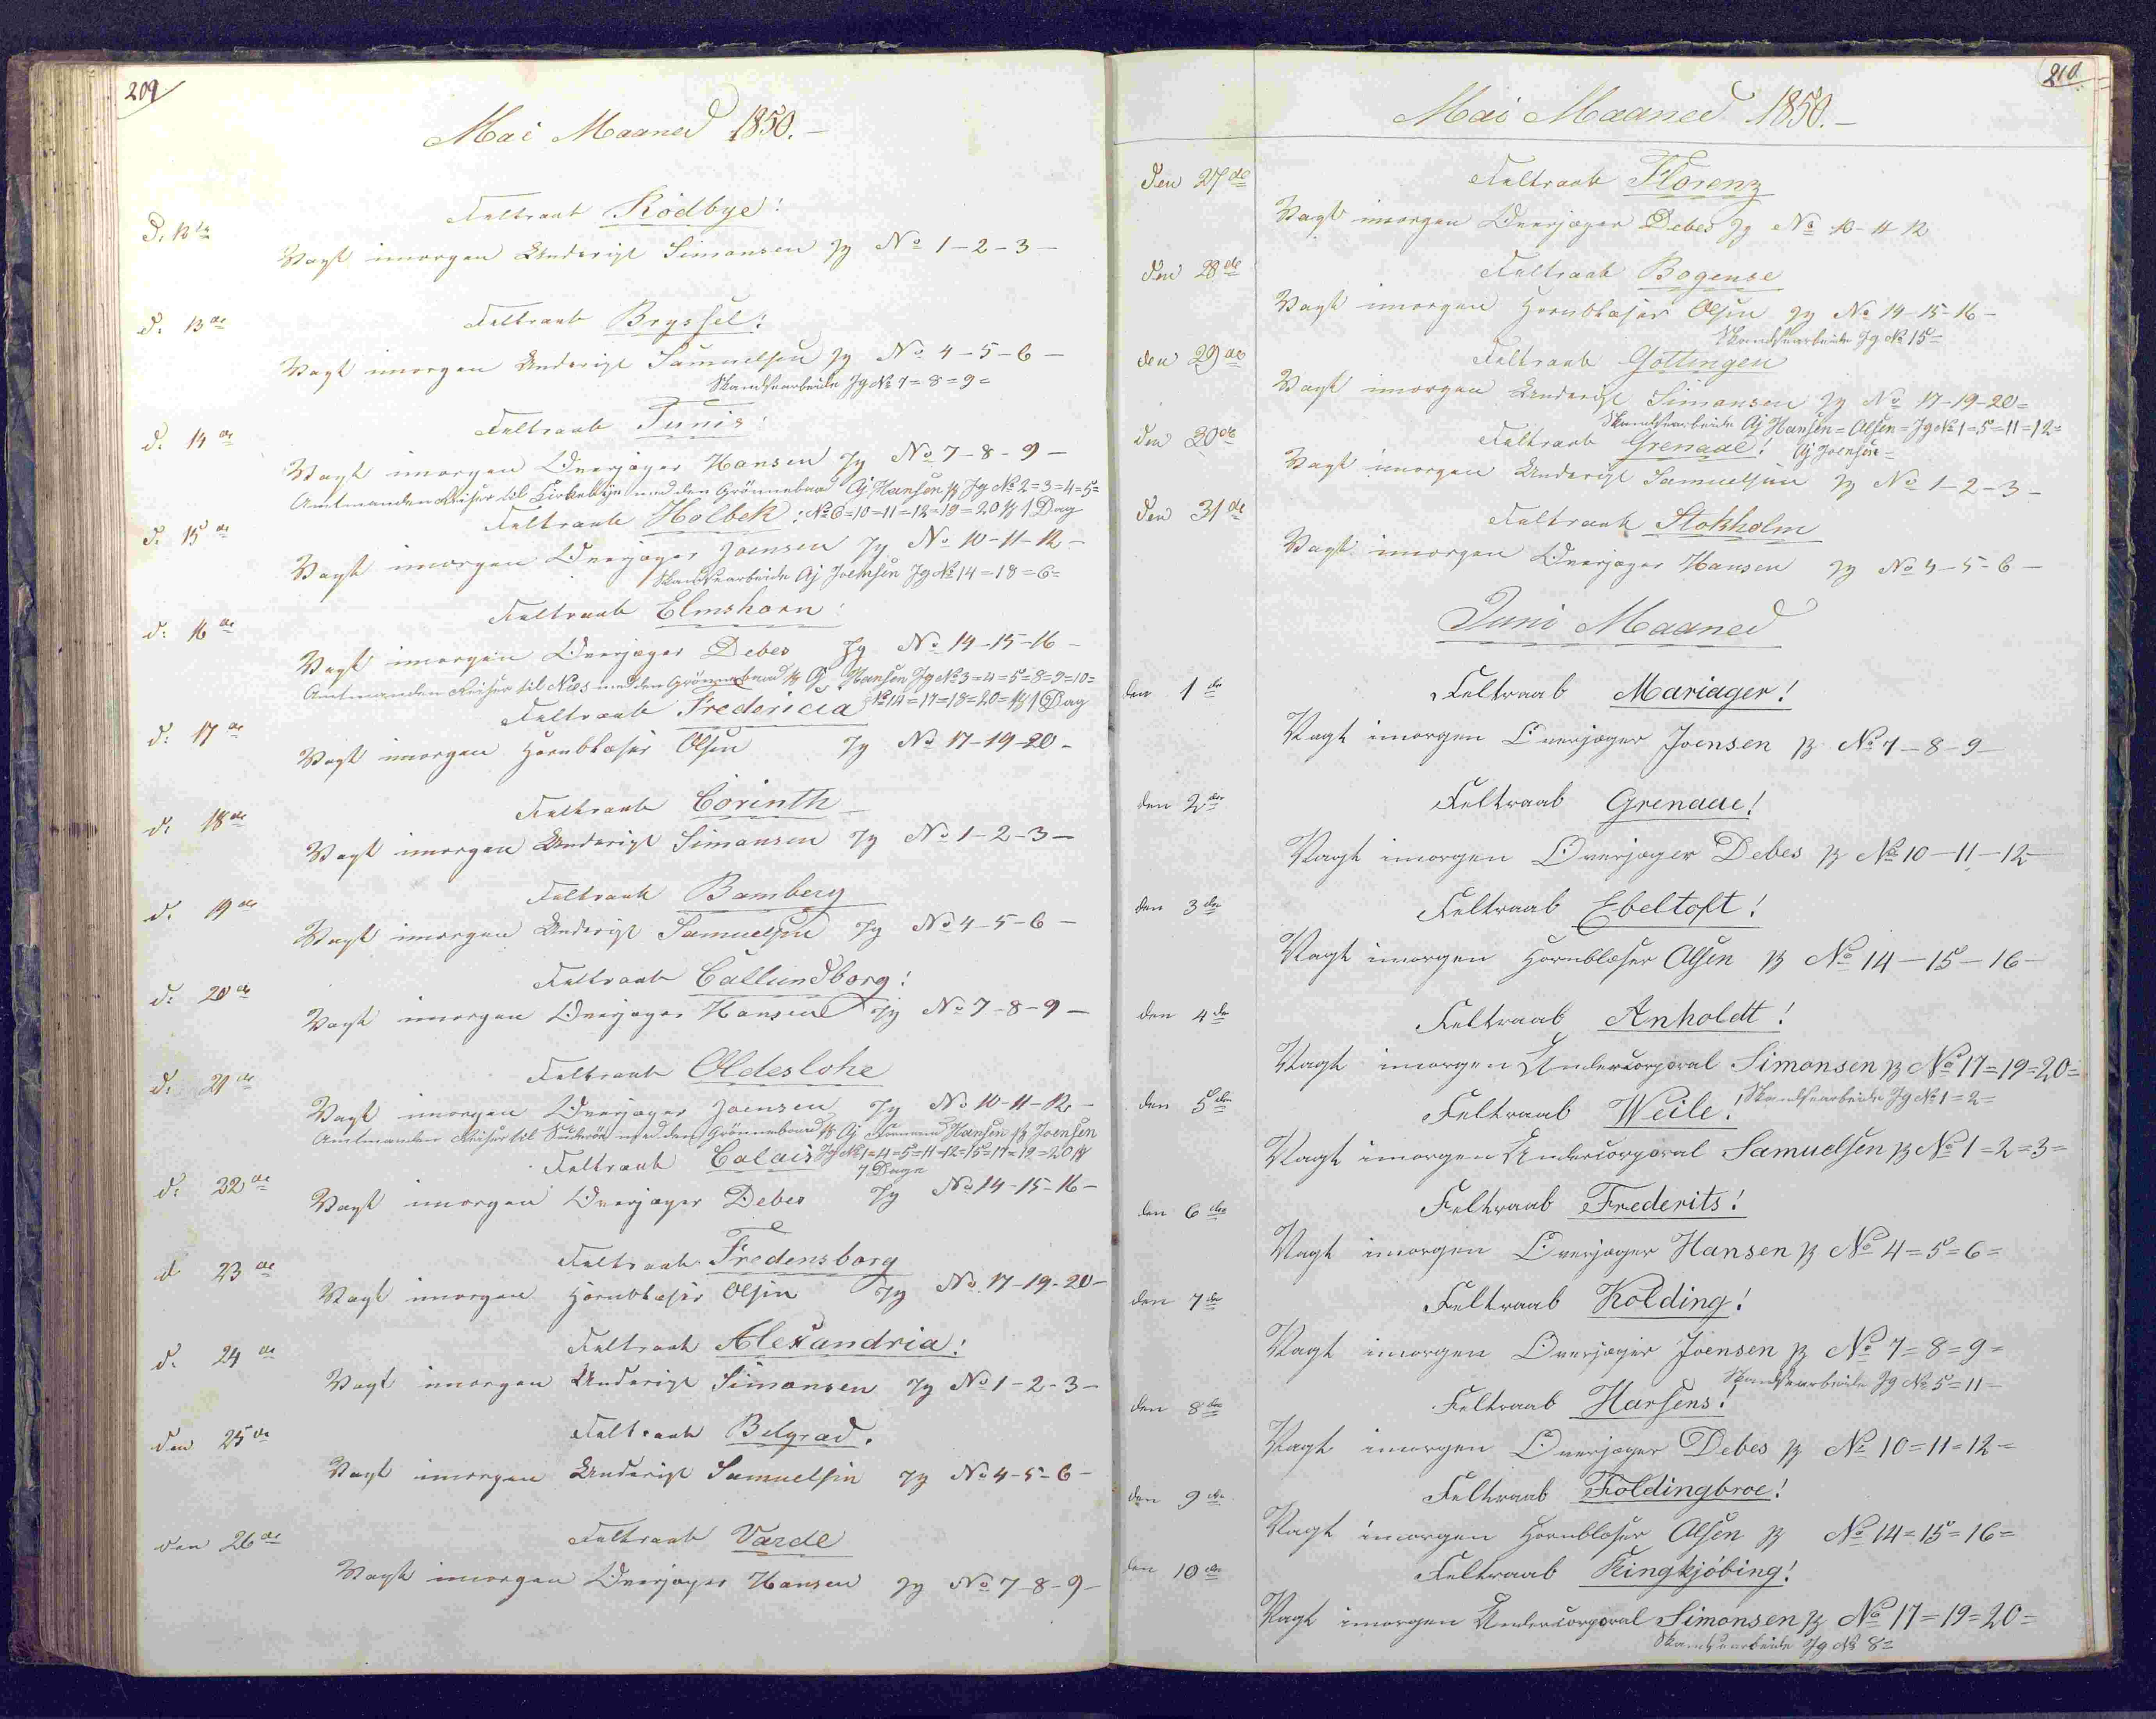 209
Mai Maaned 1850.-
Feltraab Rödbye!
d. 12te
Vagt imorgen Undercpl Simonsen Jg No 1-2-3-
Feltraab Bryssel!
d. 13de
Vagt imorgen Undercpl Samuelsen Jg No 4-5-6-
Skandsearbeide Jg No 7=8=9=
Feltraab Tunis!
d. 14de
Vagt imorgen Overjæger Hansen Jg No 7-8-9-
Amtmanden Reiser til Kirkebye med den Grönnebaad Oj Hansen & Jg No 2=3=4=5=
Feltraab Holbek! No 6=10=11=12=19=20 & 1 Dag
d. 15de
Vagt imorgen Overjæger Joensen Jg No 10-11-12-
Skandsearbeide Oj Joensen Jg No 14=18=6=
Feltraab Elmshorn!
d. 16de
Vagt imorgen Overjæger Debes Jg No 14-15-16-
Amtmanden Reiser til Næs med den Grönnebaad & Oj Hansen Jg No 3=4=5=8=9=10=
Feltraab Fredericia No 14=17=18=20= & 1 Dag
d. 17de
Vagt imorgen Hornblæser Olsen Jg No 17-19-20-
Feltraab Corinth
d. 18de
Vagt imorgen Undercpl Simonsen Jg No 1-2-3-
Feltraab Bamberg
d. 19de
Vagt imorgen Undercpl Samuelsen Jg No 4-5-6-
Feltraab Callundborg!
d. 20de
Vagt imorgen Overjæger Hansen Jg No 7-8-9-
Feltraab Oldeslohe
d. 21de
Vagt imorgen Overjæger Joensen Jg No 10-11-12-
Amtmanden Reiser til Suderöe med den Grönnebaad & Oj Hansen & Joensen
Feltraab Calais Jg No 1=4=5=11=12=15=17=19=20 &
7 Dage
d. 22de
Vagt imorgen Overjæger Debes Jg No 14-15-16-
Feltraab Fredensborg
d. 23de
Vagt imorgen Hornblæser Olsen Jg No 17-19-20-
Feltraab Alexandria!
d. 24de
Vagt imorgen Undercpl Simonsen Jg No 1-2-3-
Feltraab Belgrad.
den 25de
Vagt imorgen Undercpl Samuelsen Jg No 4-5-6-
Feltraab Varde
den 26de
Vagt imorgen Overjæger Hansen Jg No 7-8-9-
210
Mai Maaned 1850.-
den 27de Feltraab Florenz
Vagt imorgen Overjæger Debes Jg No 10-11-12
den 28de Feltraab Bogense
Vagt imorgen Hornblæser Olsen Jg No 14-15-16-
Skandsearbeide Jg No 15=
den 29de Feltraab Göttingen
Vagt imorgen Undercpl Simonsen Jg No 17-19-20=
Skandsearbeide Oj Hansen=Olsen=Jg No 1=5=11=12=
den 30de Feltraab Grenaae! Oj Joensen=
Vagt imorgen Undercpl Samuelsen Jg No 1-2-3-
den 31de Feltraab Stokholm
Vagt imorgen Overjæger Hansen Jg No 4-5-6-
Juni Maaned
den 1ste Feltraab Mariager!
Vagt imorgen Overjæger Joensen & No 7-8-9-
den 2den Feltraab Grenaae!
Vagt imorgen Overjæger Debes & No 10-11-12
den 3die Feltraab Ebeltoft!
Vagt imorgen Hornblæser Olsen & No 14-15-16-
den 4de Feltraab Anholdt!
Vagt imorgen Undercorporal Simonsen & No 17=19=20=
Skandsearbeide Jg No 1=2=
den 5te Feltraab Weile!
Vagt imorgen Undercorporal Samuelsen & No 1=2=3=
den 6te Feltraab Frederits!
Vagt imorgen Overjæger Hansen & No 4=5=6=
den 7de Feltraab Kolding!
Vagt imorgen Overjæger Joensen & No 7=8=9=
Skandsearbeide Jg No 5=11-
den 8de Feltraab Harsens!
Vagt imorgen Overjæger Debes & No 10=11=12=
den 9de Feltraab Foldingbroe!
Vagt imorgen Hornblæser Olsen & No 14=15=16=
den 10de Feltraab Ringkjöbing!
Vagt imorgen Undercorporal Simonsen & No 17=19=20=
Skandsearbeide Jg No 8=